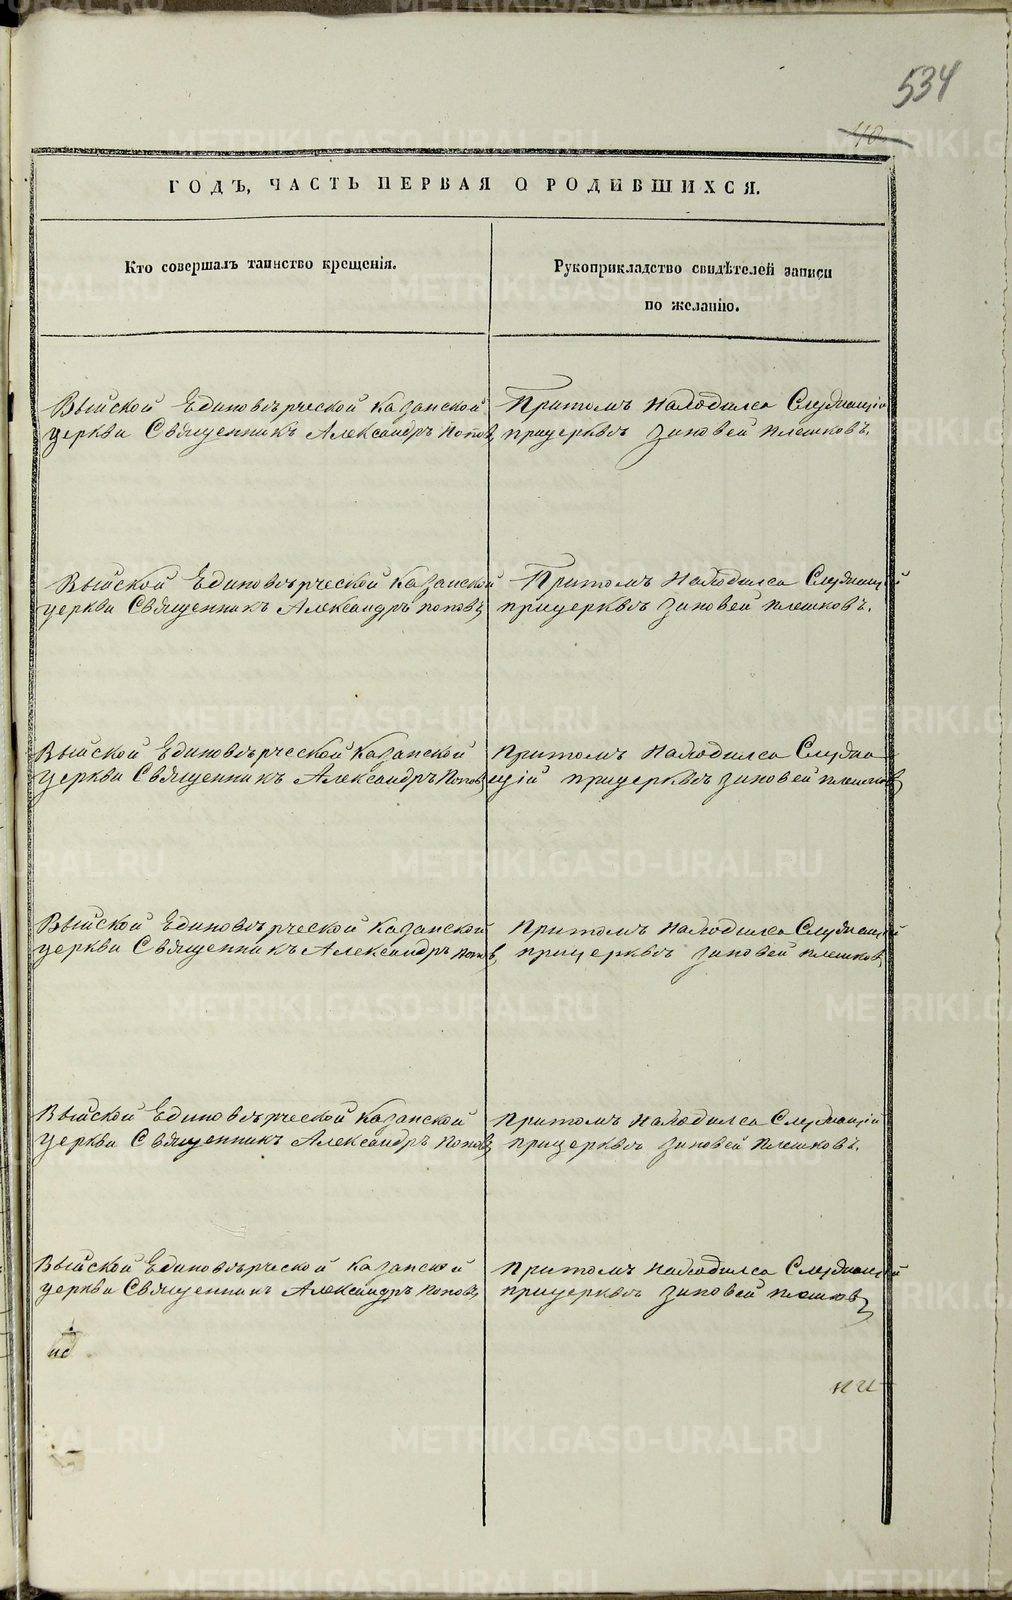 534
40
ГОДЪ, ЧАСТЬ ПЕРВАЯ О РОДИВШИХСЯ.
Кто совершалъ таинство крещенія.
Рукоприкладство свидѣтелей записи
по желанію.
Выйской Единовѣрческой Казанской
церкви Священникъ Александръ Попов
Притомъ Находился Служащій
прицерквѣ Зиновей Плешковъ.
Выйской Единовѣрческой Казанской
церкви Священникъ Александръ Поповъ
Притомъ Находился Служащий
прицерквѣ Зиновей Плешковъ.
Выйской Единовѣрческой Казанской
церкви Священникъ Александръ Поповъ
Притомъ Находился Служа
щій прицерквѣ Зиновей Плешков
Выйской Единовѣрческой Казанской
церкви Священникъ Александръ Попов
Притомъ Находился Служащий
прицерквѣ Зиновей Плешков
Выйской Единовѣрческой Казанской
церкви Священникъ Александръ Поповъ
Притомъ Находился Служащій
прицерквѣ Зиновей Плешковъ.
Выйской Единовѣрческой Казанской
церкви Священникъ Александръ Поповъ
Притомъ Находился Служащий
прицерквѣ Зиновей Плешков
METRIKI.GASO-URAL.RU